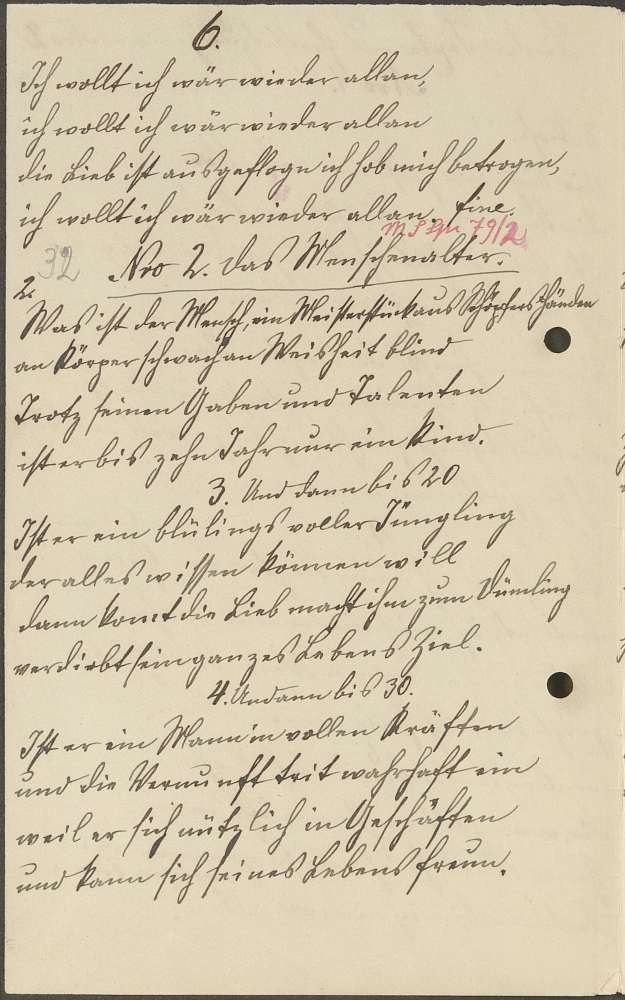 6.
Ich wollt ich wär wieder allan,
ich wollt ich wär wieder allan
die Lieb ist ausgeflogn ich hob mich betrogen,
ich wollt ich wär wieder allan. fine.
79/2
32 Nro 2. das Menschenalter.
2.
Was ist der Mensch, ein Meisterstück aus Schöpfers Händen
an Körper schwach an Weisheit blind
Trotz seinen Gaben und Talenten
ist er bis zehn Jahr nur ein Kind.
3. Und dann bis 20
Ist er ein blülings voller Jüngling
der alles wissen können will
dann komt die Lieb macht ihm zum Dümling
verdirbt sein ganzes Lebens Ziel.
4. Undann bis 30.
Ist er ein Mann in vollen Kräften
und die Vernunft trit wahrhaft ein
weil er sich nützlich in Geschäften
und kann sich seines Lebens freun.